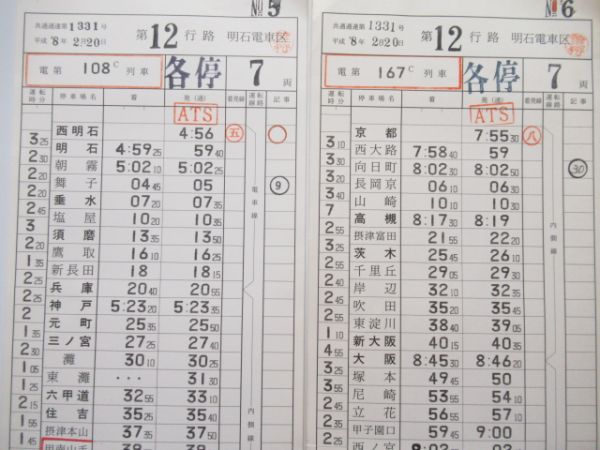 №5
共通通達第1331号
平成'8年2月20日
第12行路 明石電車区
電第 108C 列車 各停 7両
運転時分 停車場名 着 発(通) 着発線 運転線路 記事
ATS
西明石 4:56 五
3 25 明石 4:59 25 59 40
2 30 朝霧 5:02 10 5:02 25
2 20 舞子 04 45 05 電車線 9
2 20 垂水 07 20 07 35
2 45 塩屋 10 20 10 35
3 須磨 13 35 13 50
2 20 鷹取 16 10 16 25
新長田 18 18 15
兵庫 20 40 20 55
神戸 5:23 20 5:23 35
元町 25 35 25 50
1 35 三ノ宮 27 25 27 40
2 30 灘 30 10 30 25
1 05 東灘 ・・・ 31 30
1 25 六甲道 32 55 33 10
2 15 住吉 35 25 35 40
摂津本山 37 35 37 50
1 45 甲南山手
内側線
№6
共通通達第1331号
平成'8年2月20日
第12行路 明石電車区
電第 167C 列車 各停 7両
運転時分 停車場名 着 発(通) 着発線 運転線路 記事
ATS
京都 7:55 30 八
3 10 西大路 7:58 40 59
向日町 8:02 30 8:02 50 30
長岡京 06 10 06 30
山崎 10 10 10 30
7 高槻 8:17 30 8:19 内側線
2 55 摂津富田 21 55 22 20
茨木 25 45 26 10
千里丘 29 05 29 30
岸辺 32 10 32 35
吹田 35 20 35 45
東淀川 38 40 39 05
1 10 新大阪 40 15 40 35
大阪 8:45 30 8:46 20
塚本 49 25 50
尼崎 53 55 54 10
立花 56 55 57 10
甲子園口 59 45 9:00